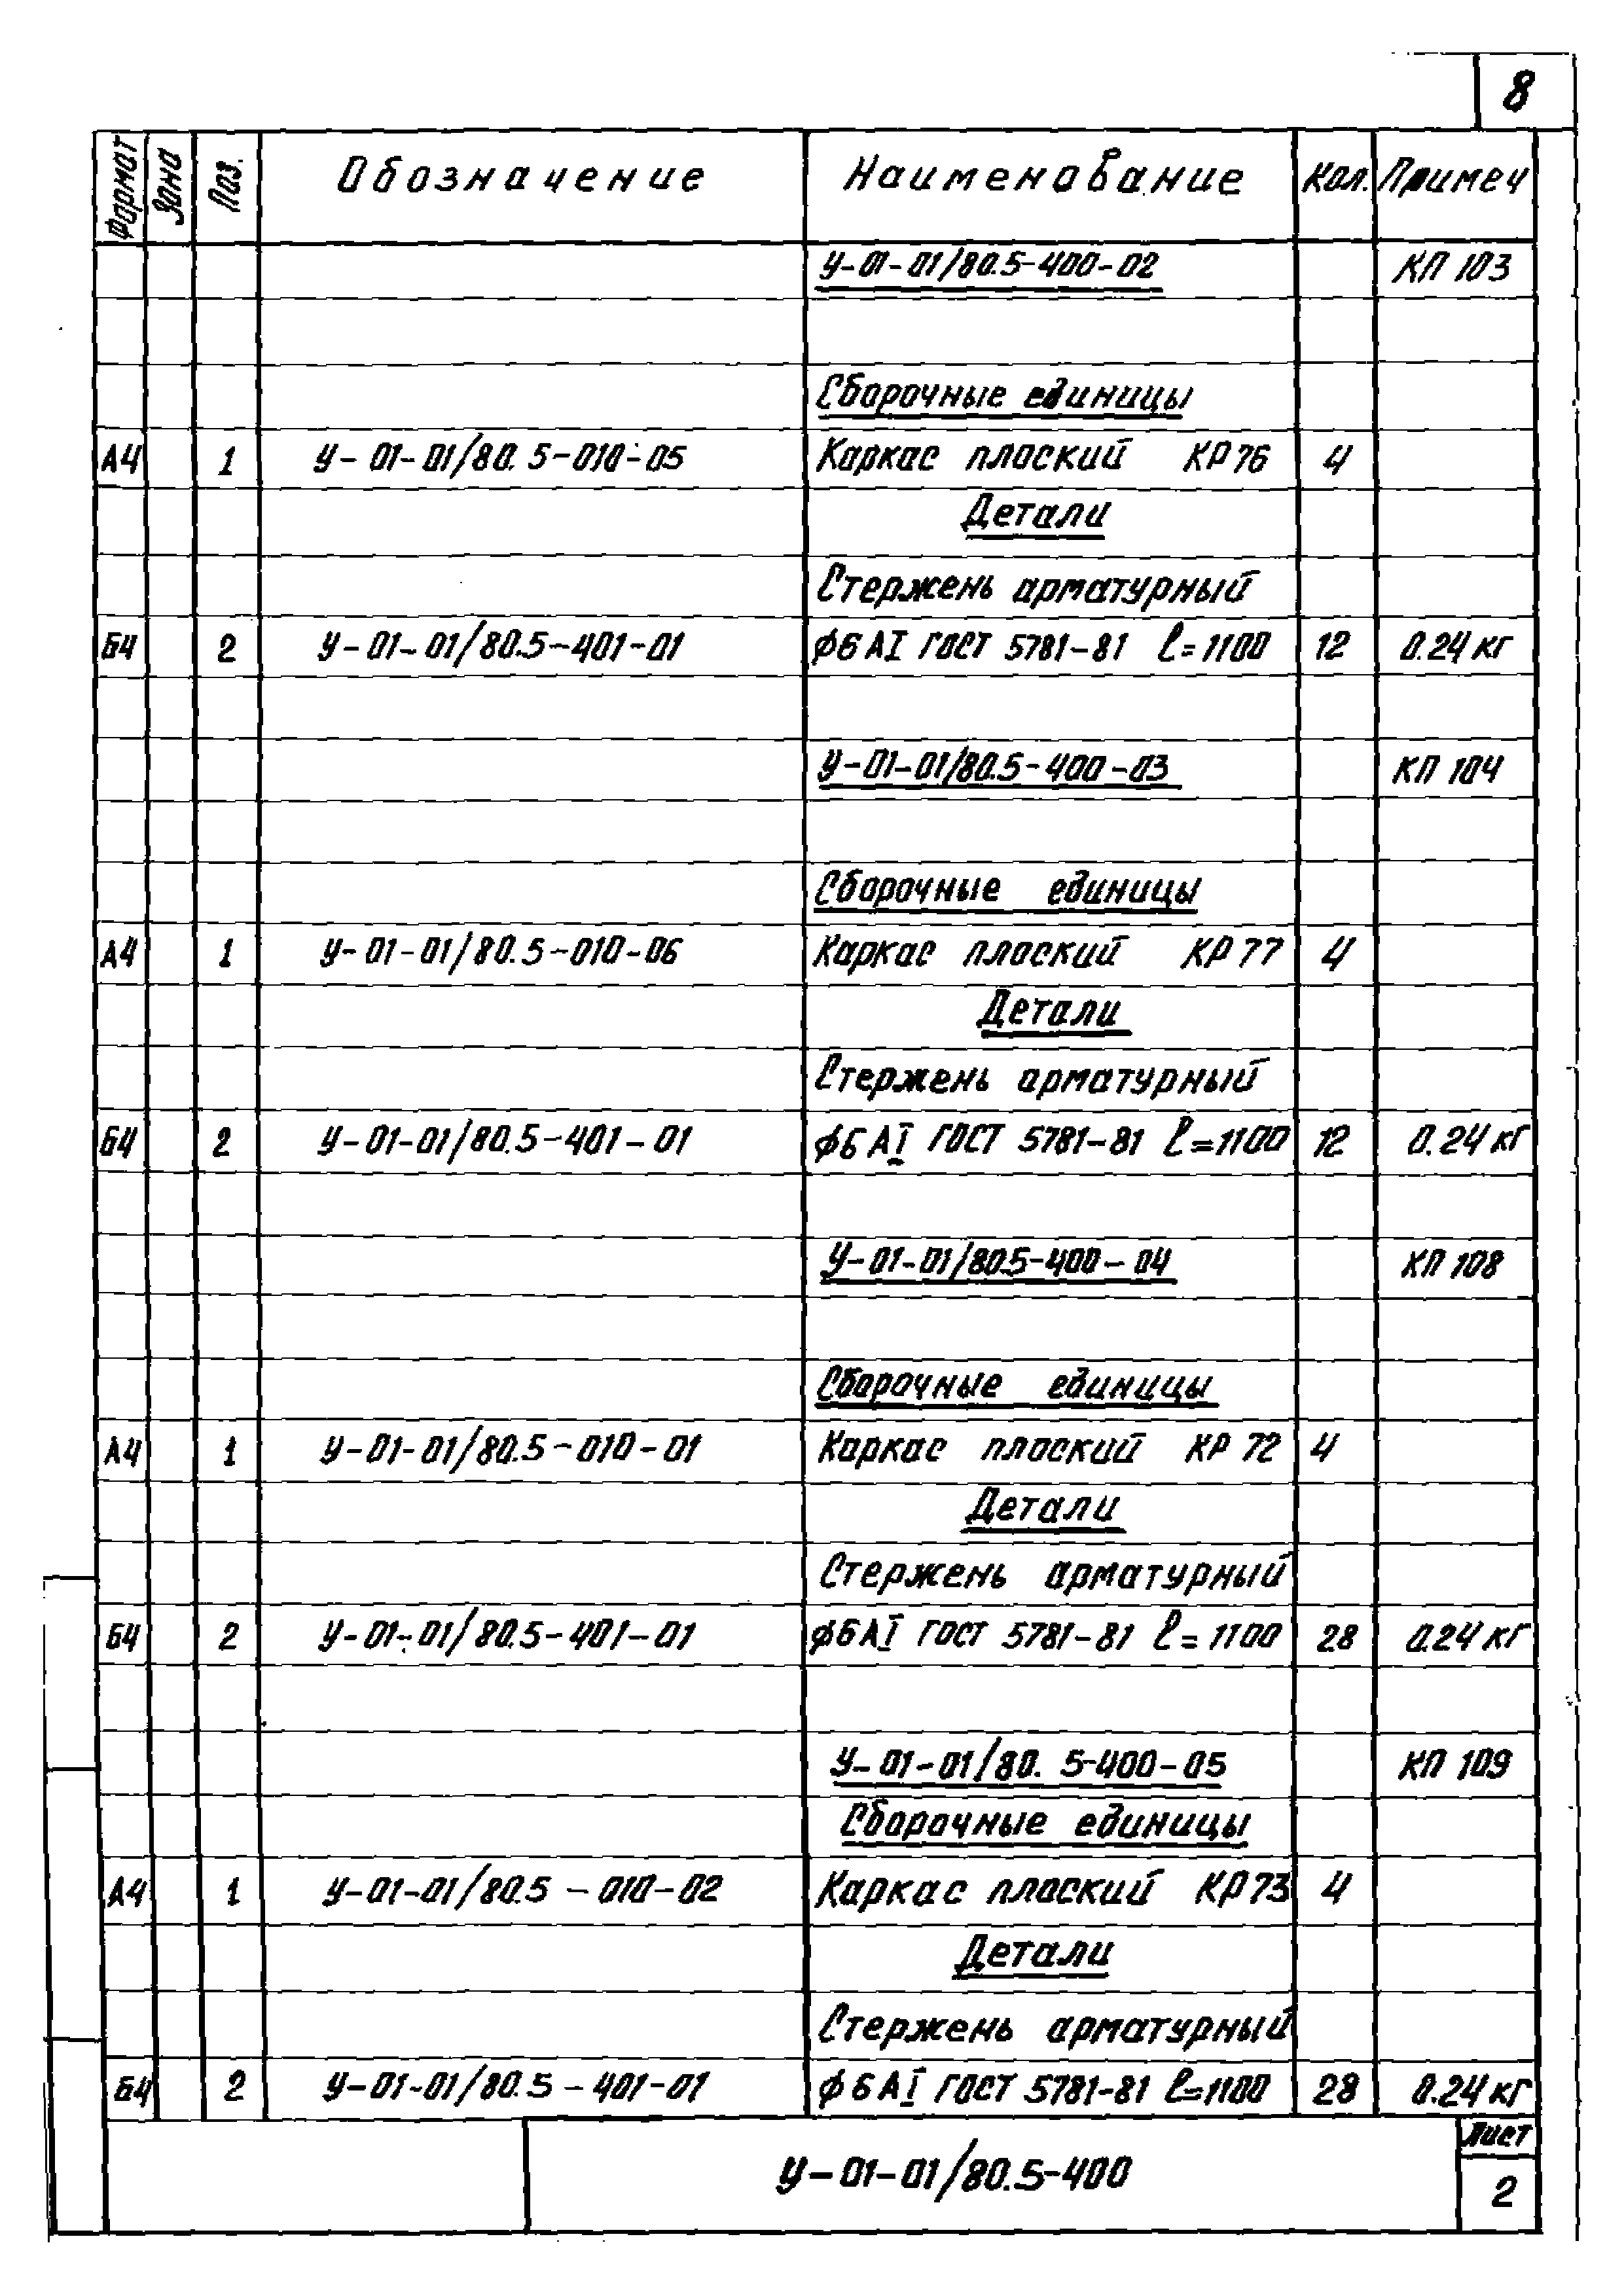 8
Формат Зона Поз. Обозначение Наименование Кол. Примеч
У-01-01/80.5-400-02 КП 103
Сборочные единицы
А4 1 У-01-01/80.5-010-05 Каркас плоский КР 76 4
Детали
Стержень арматурный
Б4 2 У-01-01/80.5-401-01 ϕ6 АI ГОСТ 5781-81 ℓ=1100 12 0.24 кг
У-01-01/80.5-400-03 КП 104
Сборочные единицы
А4 1 У-01-01/80.5-010-06 Каркас плоский КР 77 4
Детали
Стержень арматурный
Б4 2 У-01-01/80.5-401-01 ϕ6 АI ГОСТ 5781-81 ℓ=1100 12 0.24 кг
У-01-01/80.5-400-04 КП 108
Сборочные единицы
А4 1 У-01-01/80.5-010-01 Каркас плоский КР 72 4
Детали
Стержень арматурный
Б4 2 У-01-01/80.5-401-01 ϕ6 АI ГОСТ 5781-81 ℓ=1100 28 0.24 кг
У-01-01/80.5-400-05 КП 109
Сборочные единицы
А4 1 У-01-01/80.5-010-02 Каркас плоский КР 73 4
Детали
Стержень арматурный
Б4 2 У-01-01/80.5-401-01 ϕ6 АI ГОСТ 5781-81 ℓ=1100 28 0.24 кг
У-01-01/80.5-400
Лист
2